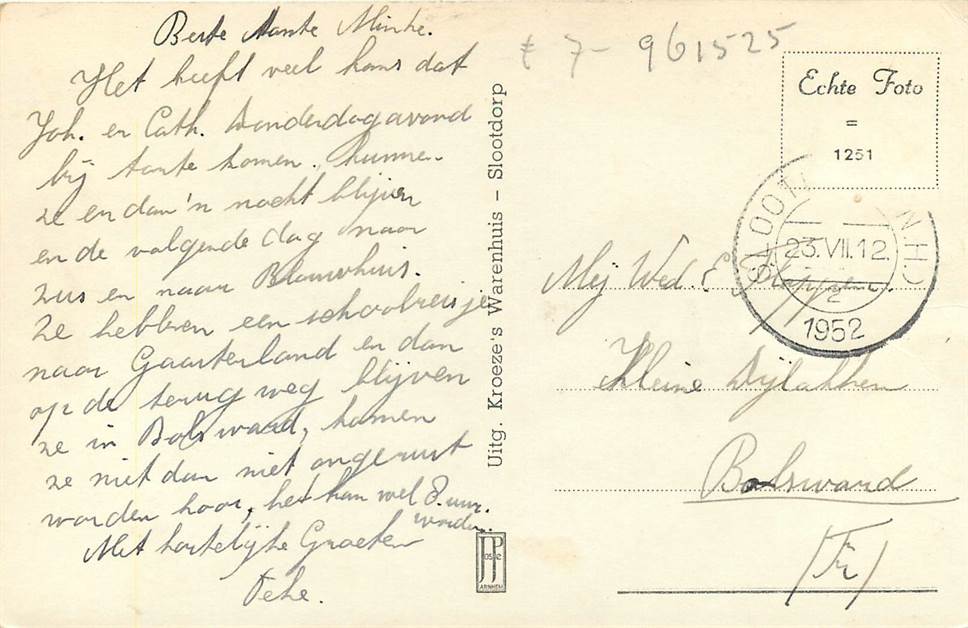 Beste Tante Minke.
Het heeft veel kans dat
Joh. en Cath. Donderdagavond
bij tante komen. Kunnen
ze en dan 'n nacht blijven
en de volgende dag naar
zus en naar Blauwhuis.
Ze hebben een schoolreisje
naar Gaasterland en dan
op de terug weg blijven
ze in Bolsward, komen
ze niet dan niet ongerust
worden hoor, het kan wel 8 uur.
worden.
Met hartelijke Groeten
Uitg. Kroeze's Warenhuis – Slootdorp
JP
ARNHEM
€ 7- 961525
Echte Foto
=
1251
SLOOTD NH
23.VII.12.
2
1952
Mej Wed. E.
Kleine Dijlakker
Bolsward
(Fr)